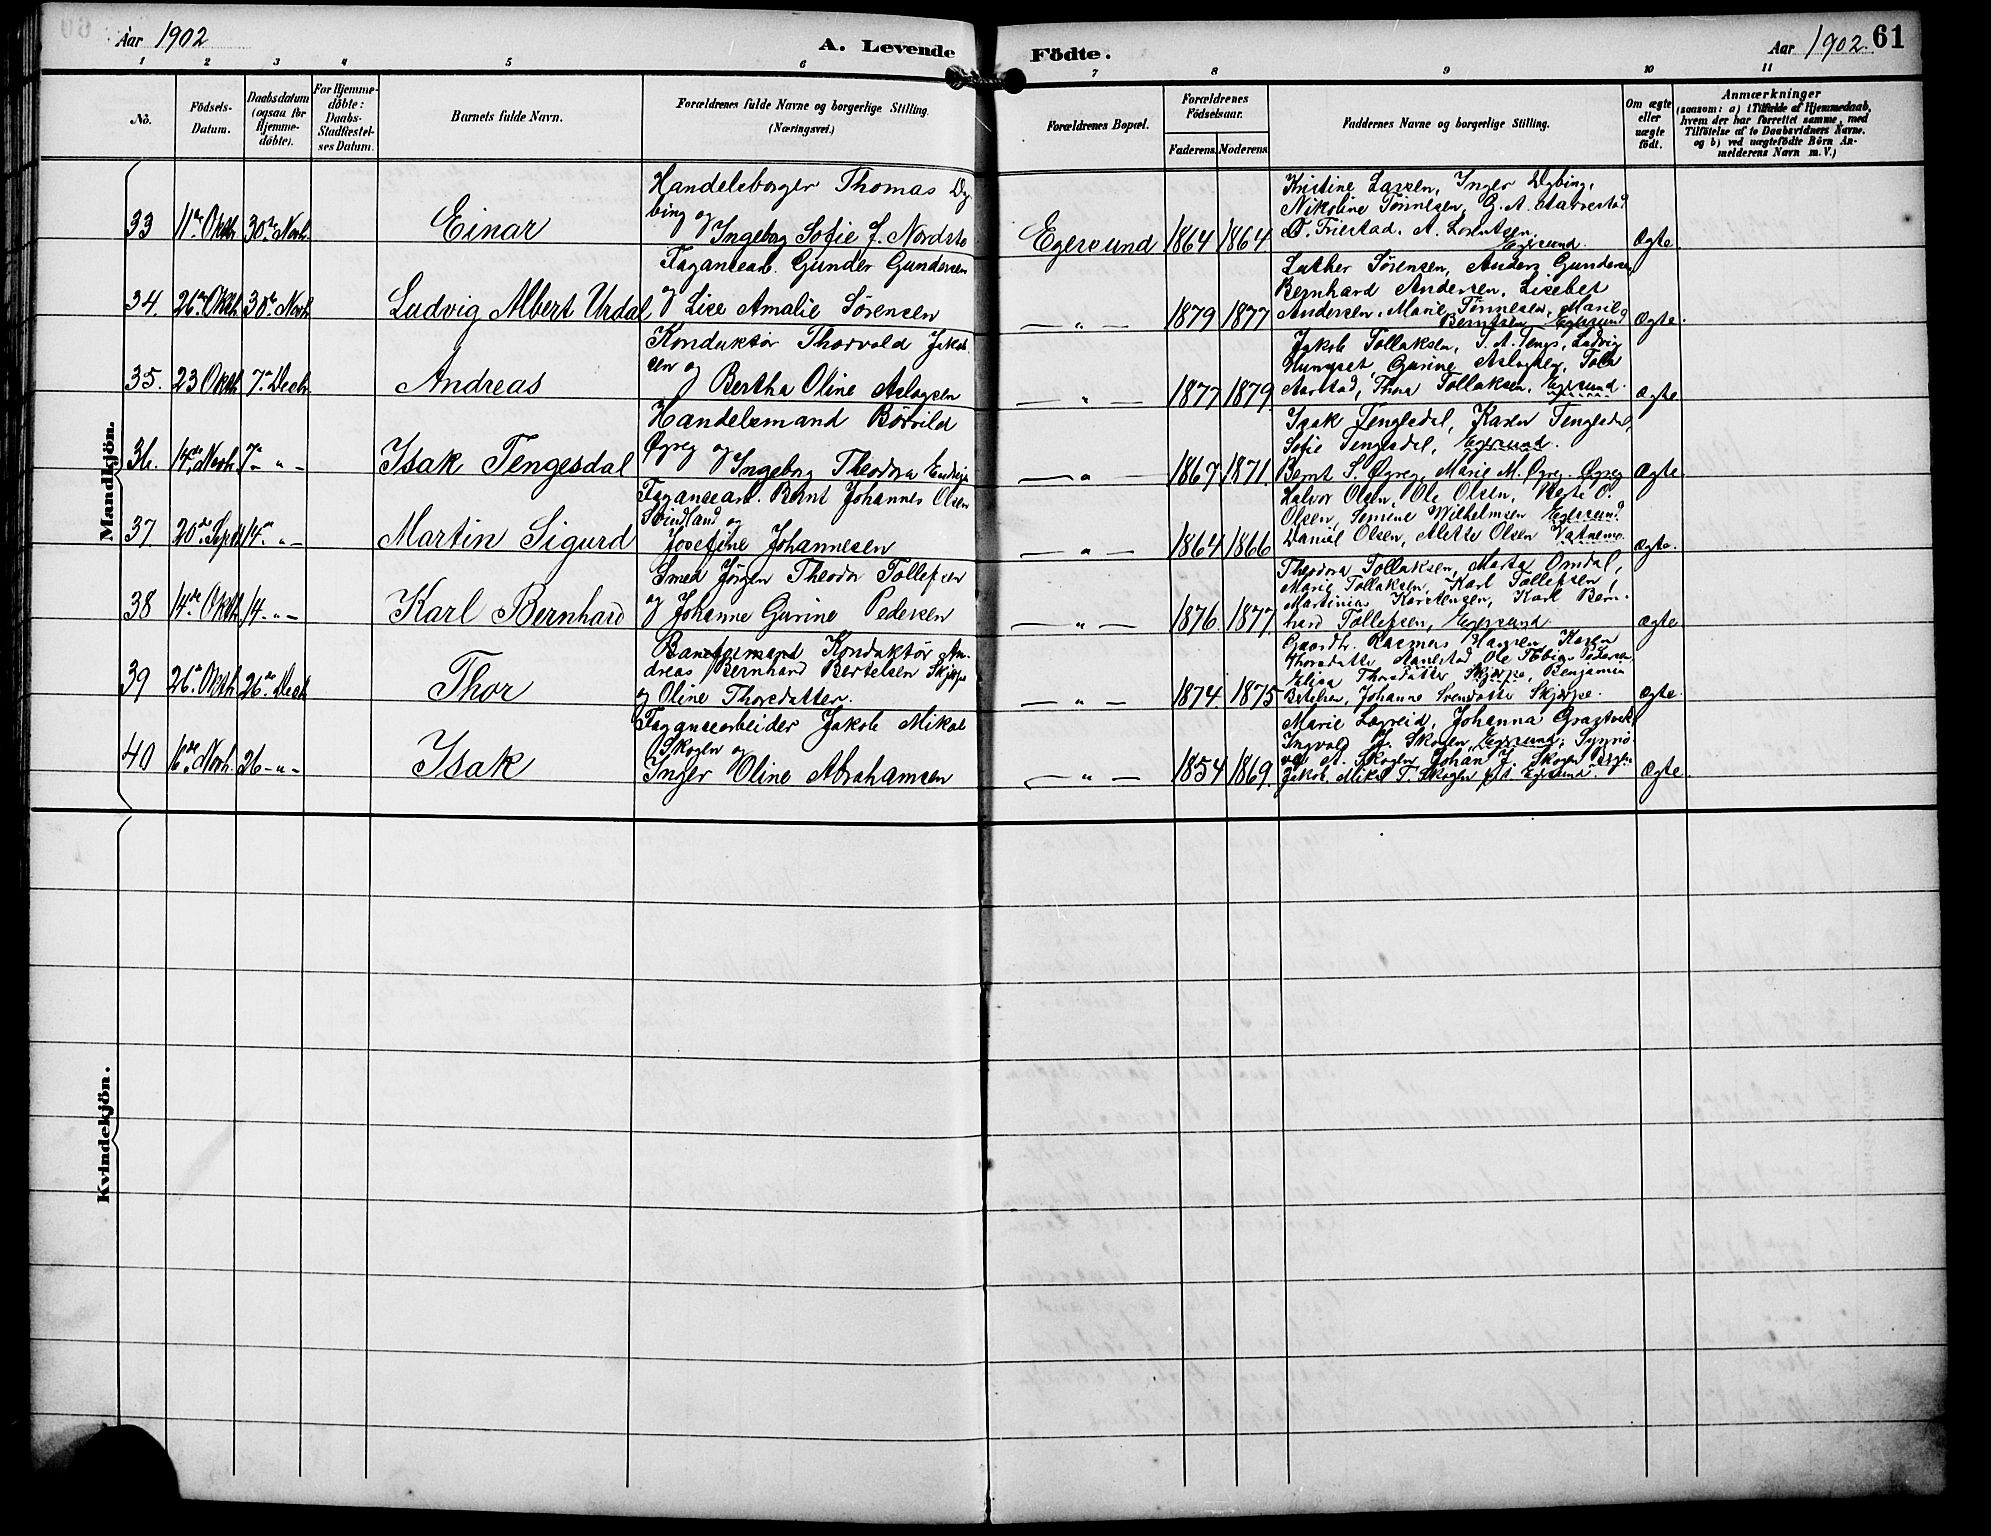 Aar 1902
A. Levende
Födte.
Aar 1902.
61
1 2 3 4 5 6 7 8 9 10 11
No.
Födsels-
Datum.
Daabsdatum
(ogsaa for
Hjemme-
döbte).
For Hjemme-
döbte:
Daabs-
Stadfæstel-
ses Datum.
Barnets fulde Navn.
Forældrenes fulde Navne og borgerlige Stilling.
(Næringsvei.)
Forældrenes Bopæl.
Forældrenes
Födselsaar.
Faderens. Moderens.
Faddernes Navne og borgerlige Stilling.
Om ægte
eller
uægte
födt.
Anmærkninger
(saasom: a) i Tilfælde af Hjemmedaab,
hvem der har forrettet samme, med
Tilföielse af to Daabsvidners Navne.
og b) ved uægtefödte Börn An-
melderens Navn m. V.)
Mandkjön.
33 11te Oktb. 30te Novb. Einar
Handelsborger Thomas Dy-
bing og
Ingeborg Sofie f. Nordbo
Egersund 1864 1864
Kristine Larsen, Inger Dybing,
Nikoline Tönnesen, G. A. Aarrestad
O. Friestad, A. Lorentsen,
Egersund.
Ægte.
34. 26de Oktb. 30te Novb. Ludvig Albert Urdal
Fayancearb. Gunder Gundersen
og Lise Amalie Sørensen
— " — 1879 1877
Luther Sørensen, Anders Gundersen,
Bernhard Andersen, Lisebet
Andersen, Marie Tönnesen, Marie
Berntsen Egersund
Ægte.
35. 23 Oktb. 7de Decbr. Andreas
Konduktör Thorvald Jakob-
sen og
Bertha Oline Aslagsen
— " — 1877 1879
Jakob Tollaksen, Ludvig
Gurine Aslagsen,
Aarstad, Thora Tollaksen, Egersund.
Ægte
36. 14de Novb. 7de " — Isak Tengesdal
Handelsmand Börvild
Øgreg og
Ingeborg Theodora
— " — 1867 1871
Isak Tengesdal, Karen Tengesdal,
Sofie Tengesdal, Egersund.
Bernt S. Øgreg, Marie M. Øgreg. Øgreg
Ægte
37 20de Septb 14de " — Martin Sigurd
Fayancearb. Bernt Johannes Olsen
Svindland og
Josefine Johannesen
— " — 1864 1866
Halvor Olsen, Ole Olsen, O.
Olsen, Wilhelmsen Egersund
Daniel Olsen, Mette Olsen
Ægte.
38 14de Oktb. 14 " — Karl Bernhard
Smed Jörgen Theodor Tollefsen
og Johanne Gurine Pedersen
— " — 1876 1877
Theodora Tollaksen, Marta Omdal,
Marie Tollaksen, Karl Tollefsen,
Martinius Karstensen, Karl Bern-
hard Tollefsen, Egersund
Ægte
39 26de Oktb. 26de Decb Thor
Baneformand Konduktör An-
dreas Bernhard Bertelsen Skjæpe
og Oline Thorsdatter.
— " — 1874 1875
Gaardb. Rasmus Hansen, Karen
Thorsdatter Aarrestad Ole Tobias Pedersen,
Elisa Thorsdatter Skjæpe, Benjamin
Bertelsen, Johanne Svendsatter Skjæpe.
Ægte.
40 6te Novb. 26 — " — Isak
Fayancearbeider Jakob Mikal
Skogen og
Inger Oline Abrahamsen
— " — 1854 1869.
Marie Lægreid, Johanna
Ingvald J. Skogen, Egersund;
A. Skogen, Johan J. Skogen
Jakob Mikal T. Skogen Egersund
Ægte
Kvindekjön.